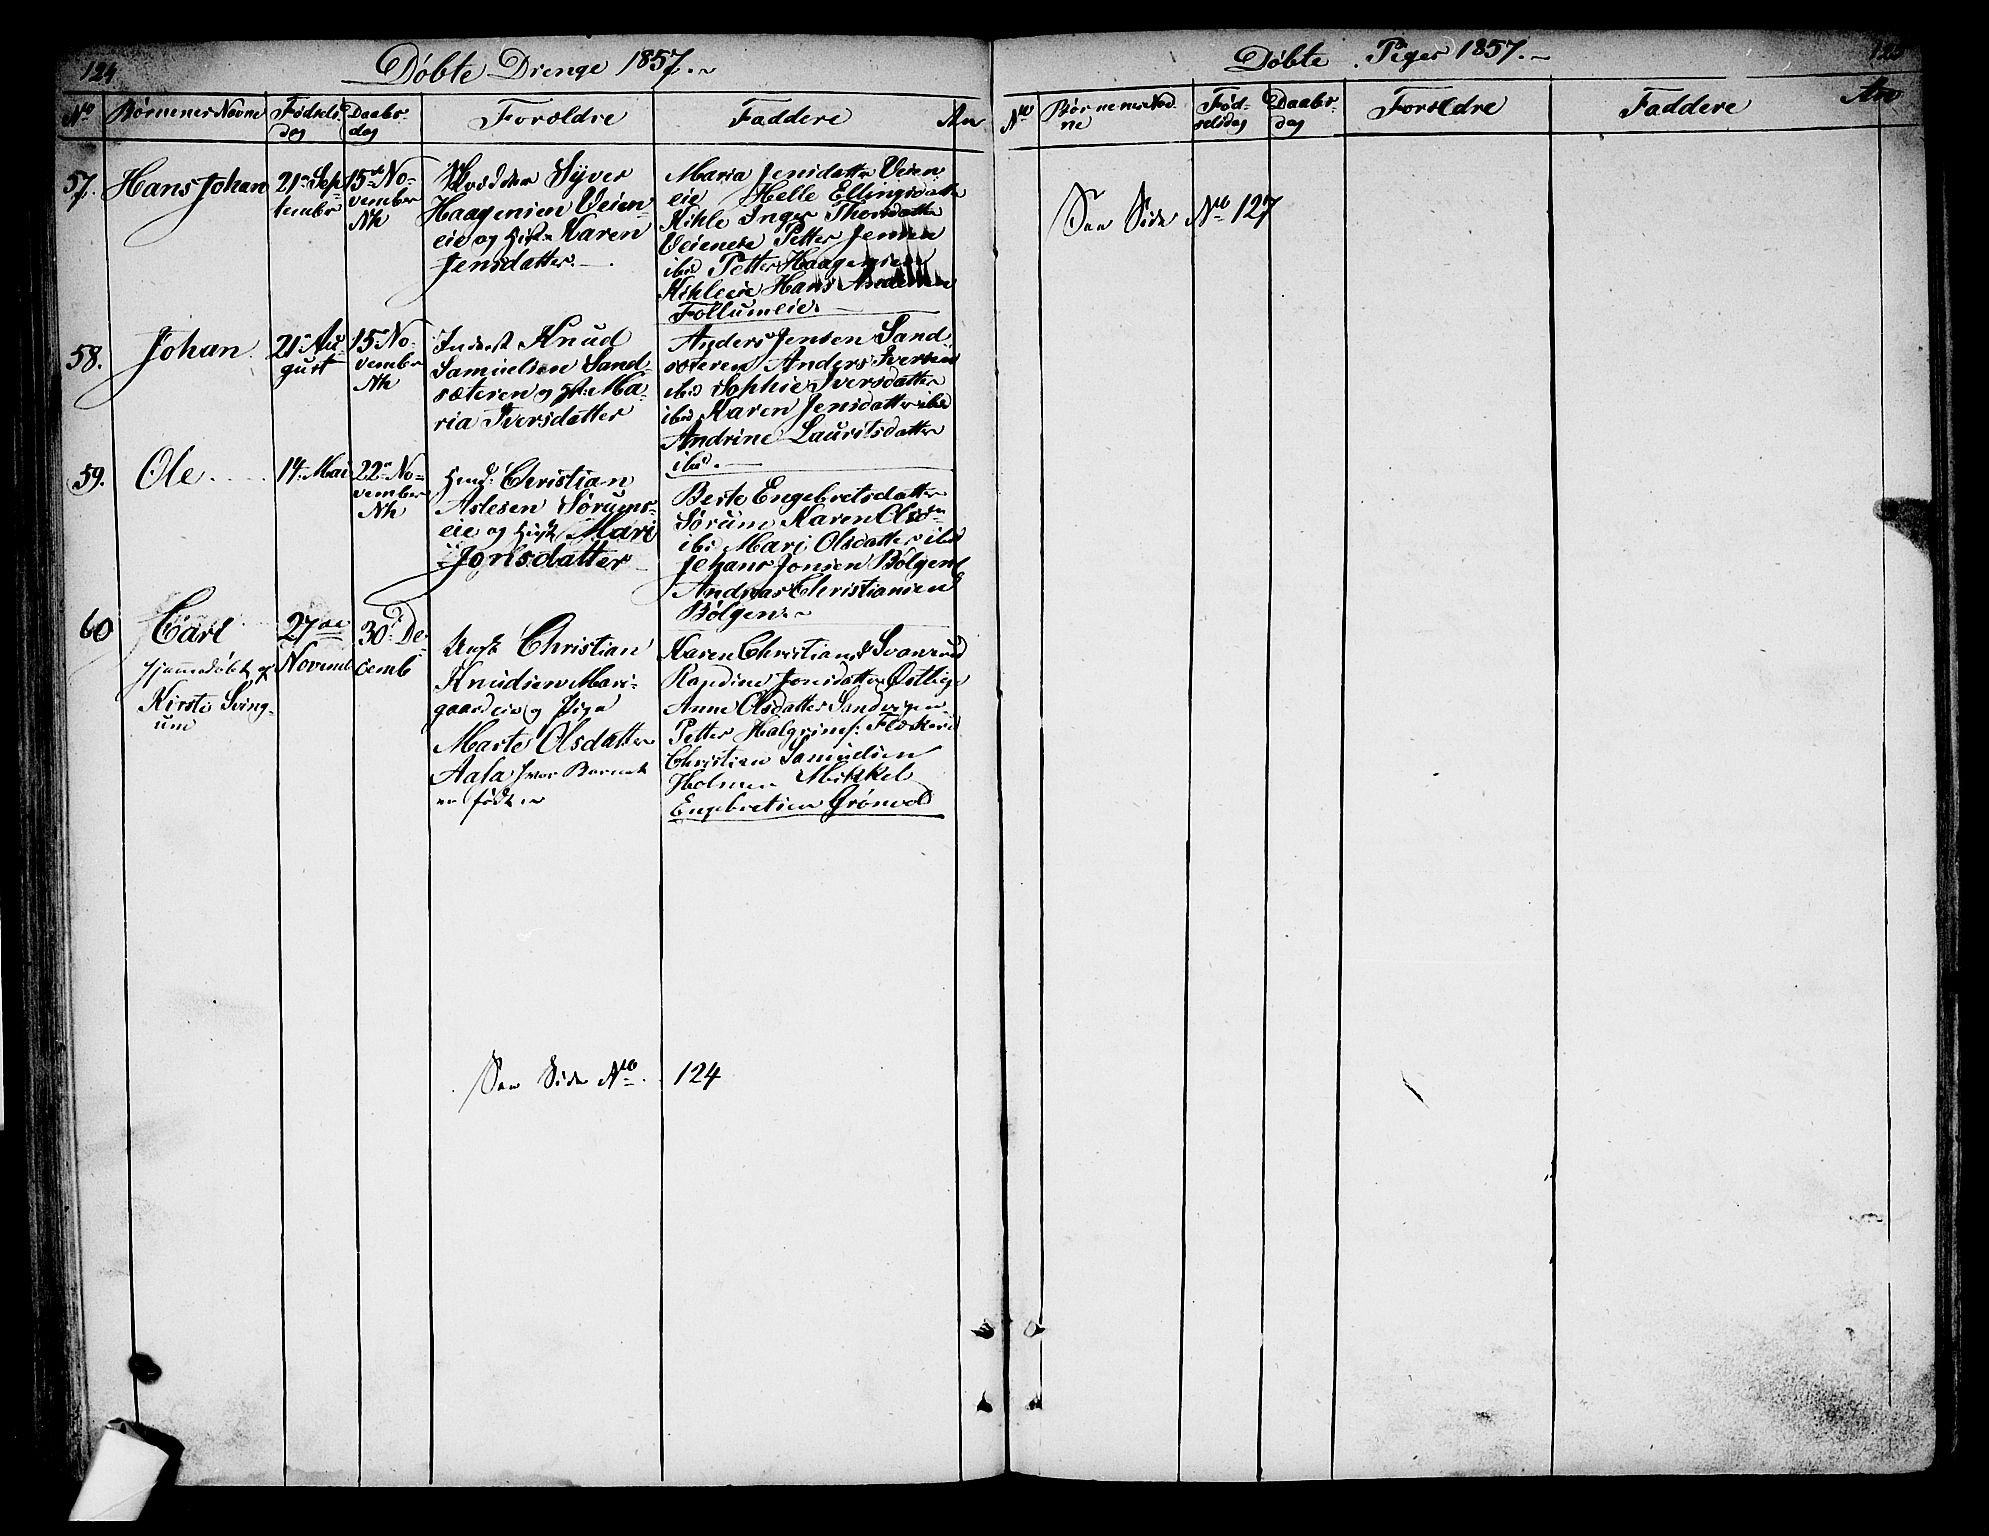 124
Døbte Drenge 1857.
No Børnenes Navne Fødsels dag Daabs dag Forældre Faddere An
57. Hans Johan
21de Sep
tember
15de No-
vember
Nk
Syver
Haagensen Veien
eie og Hst. Karen
Jensdatter.
Maria Jensdatter Veien
eie Helle Ellingsdatter
Kihle Inger Thorsdatter
Veieneie Petter Jensen
ibd Petter Haagensen
Kihleeie Hans Andersen
Follumeie.
58. Johan
21de Au-
gust
15de No-
vember
Nk
Inderst Knud
Samuelsen Sand-
sæteren og Hst. Ma-
ria Iversdatter
Anders Jensen Sand
sæteren Anders Iversen
ibd Sophie Iversdatter
ibd Karen Jensdatter ibd
Andrine Lauritsdatter
ibd.
59. Ole
14. Mai
22de No-
vember
Nk
Hmd. Christian
Aslesen Sørums-
eie og Hst. Mari
Jonsdatter
Berte Engebretsdatter
Sørum Karen Olsdtr
ibd Mari Olsdatter ibd
Johans Jonsen Bølgen
Andreas Christiansen
Bølgen
60 Carl
Hjemmedøbt af
Kirsti Sving-
um
27de
Novemb
30. De-
cemb
Ungk Christian
Knudsen Mari-
gaardeie og Pige
Marte Olsdatter
Aasa hvor Barnet
er født
Karen Christiansd Svarverud
Randine Jonsdatter
Anne Olsdatter Sandvigen
Petter Halgrims:
Christian Samuelsen
Holmen Mikkel
Engebretsen Grønvold
See Side No. 124
125
Døbte Piger 1857.
No Børnenes Nav
ne Fød-
selsdag Daabs-
dag Forældre Faddere An
See Side No 127